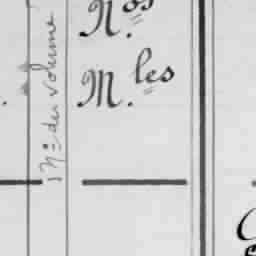 Nos
M.les
Nº du volume